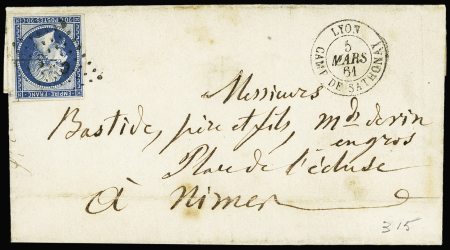 EMPIRE FRANC
LYON
5
MARS
61
CAMP DE SATHONAY
Messieurs
Bastide, père et fils, mds de vin
en gros
Place de l'écluse
à Nimes
315